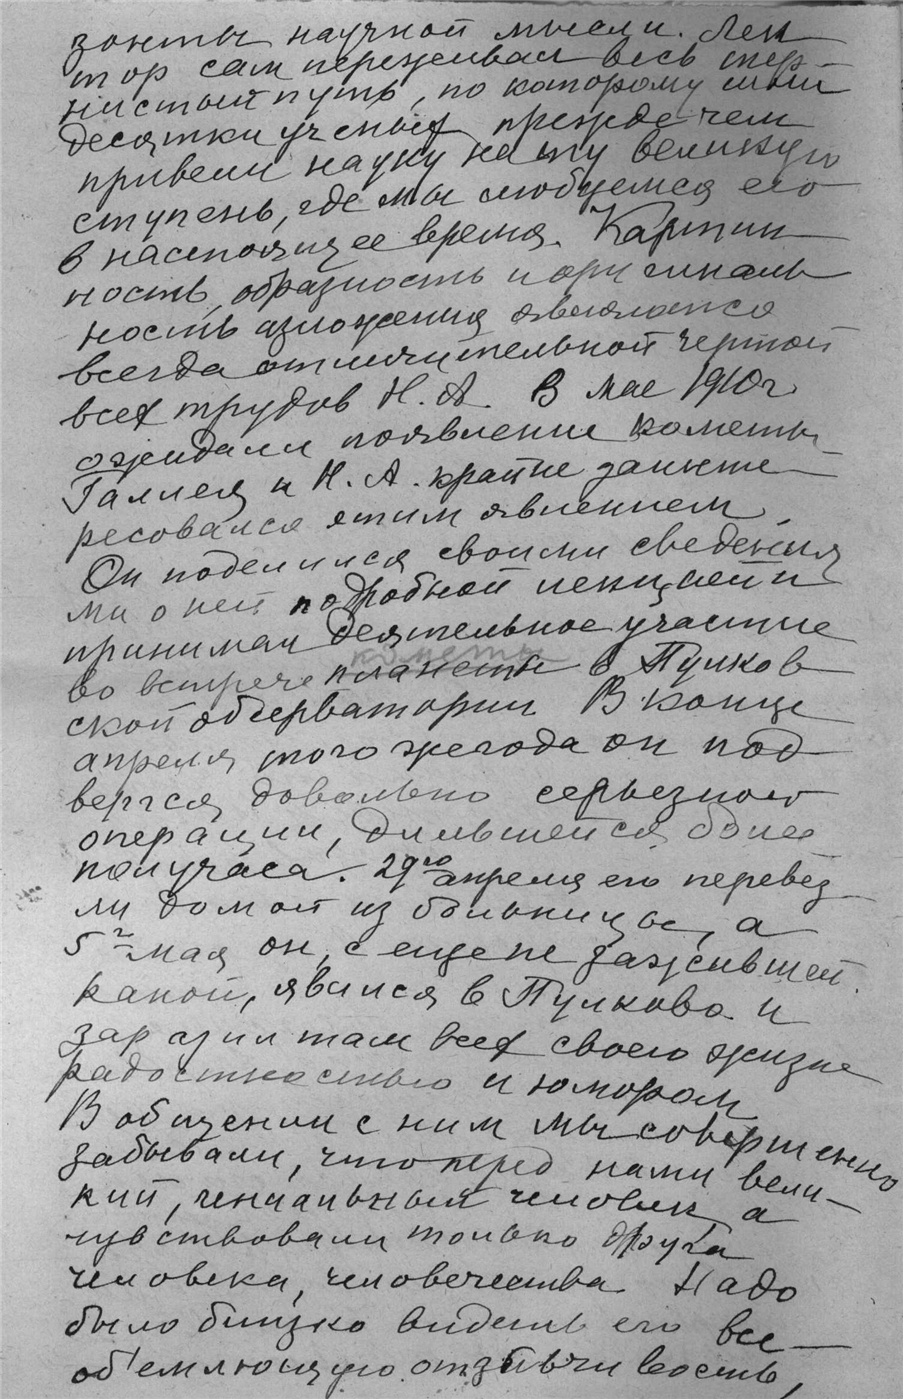 зонты научной мысли. Лек
тор сам переживал весь тер-
нистый путь, по которому шли
десятки ученых прежде чем
привели науку на ту великую
ступень, где мы любуемся ею
в настоящее время. Картин
ность, образность и оригиналь
ность изложения являлась
всегда отличительной чертой
всех трудов Н. А. В мае 1910 г.
ожидали появление кометы
Галлея и Н. А. крайне заинте-
ресовался этим явлением.
Он поделился своими сведения
ми о ней подробной лекцией и
принимал деятельное участие
кометы
во встрече планеты в Пулков
ской обсерватории В конце
апреля того же года он под
вергся довольно серьезной
операции, длившейся более
получаса. 29го апреля его перевез
ли домой из больницы, а
5го мая он, с еще не зажившей
раной, явился в Пулково и
заразил там всех своею жизне
радостностью и юмором
В общении с ним мы совершенно
забывали, что перед нами вели-
кий, гениальный человек, а
чувствовали только друга
человека, человечества Надо
было близко видеть его все-
об'емлющую отзывчивость,